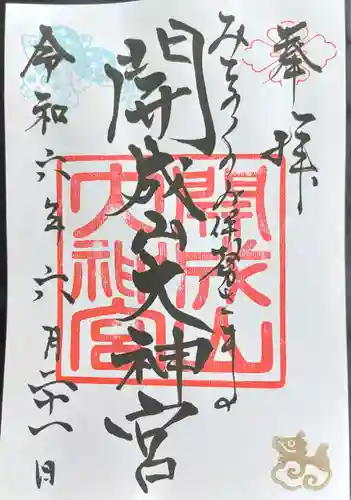 奉拝
みちのくのお伊勢さま
開成山大神宮
令和六年六月二十一日
開成山
大神宮